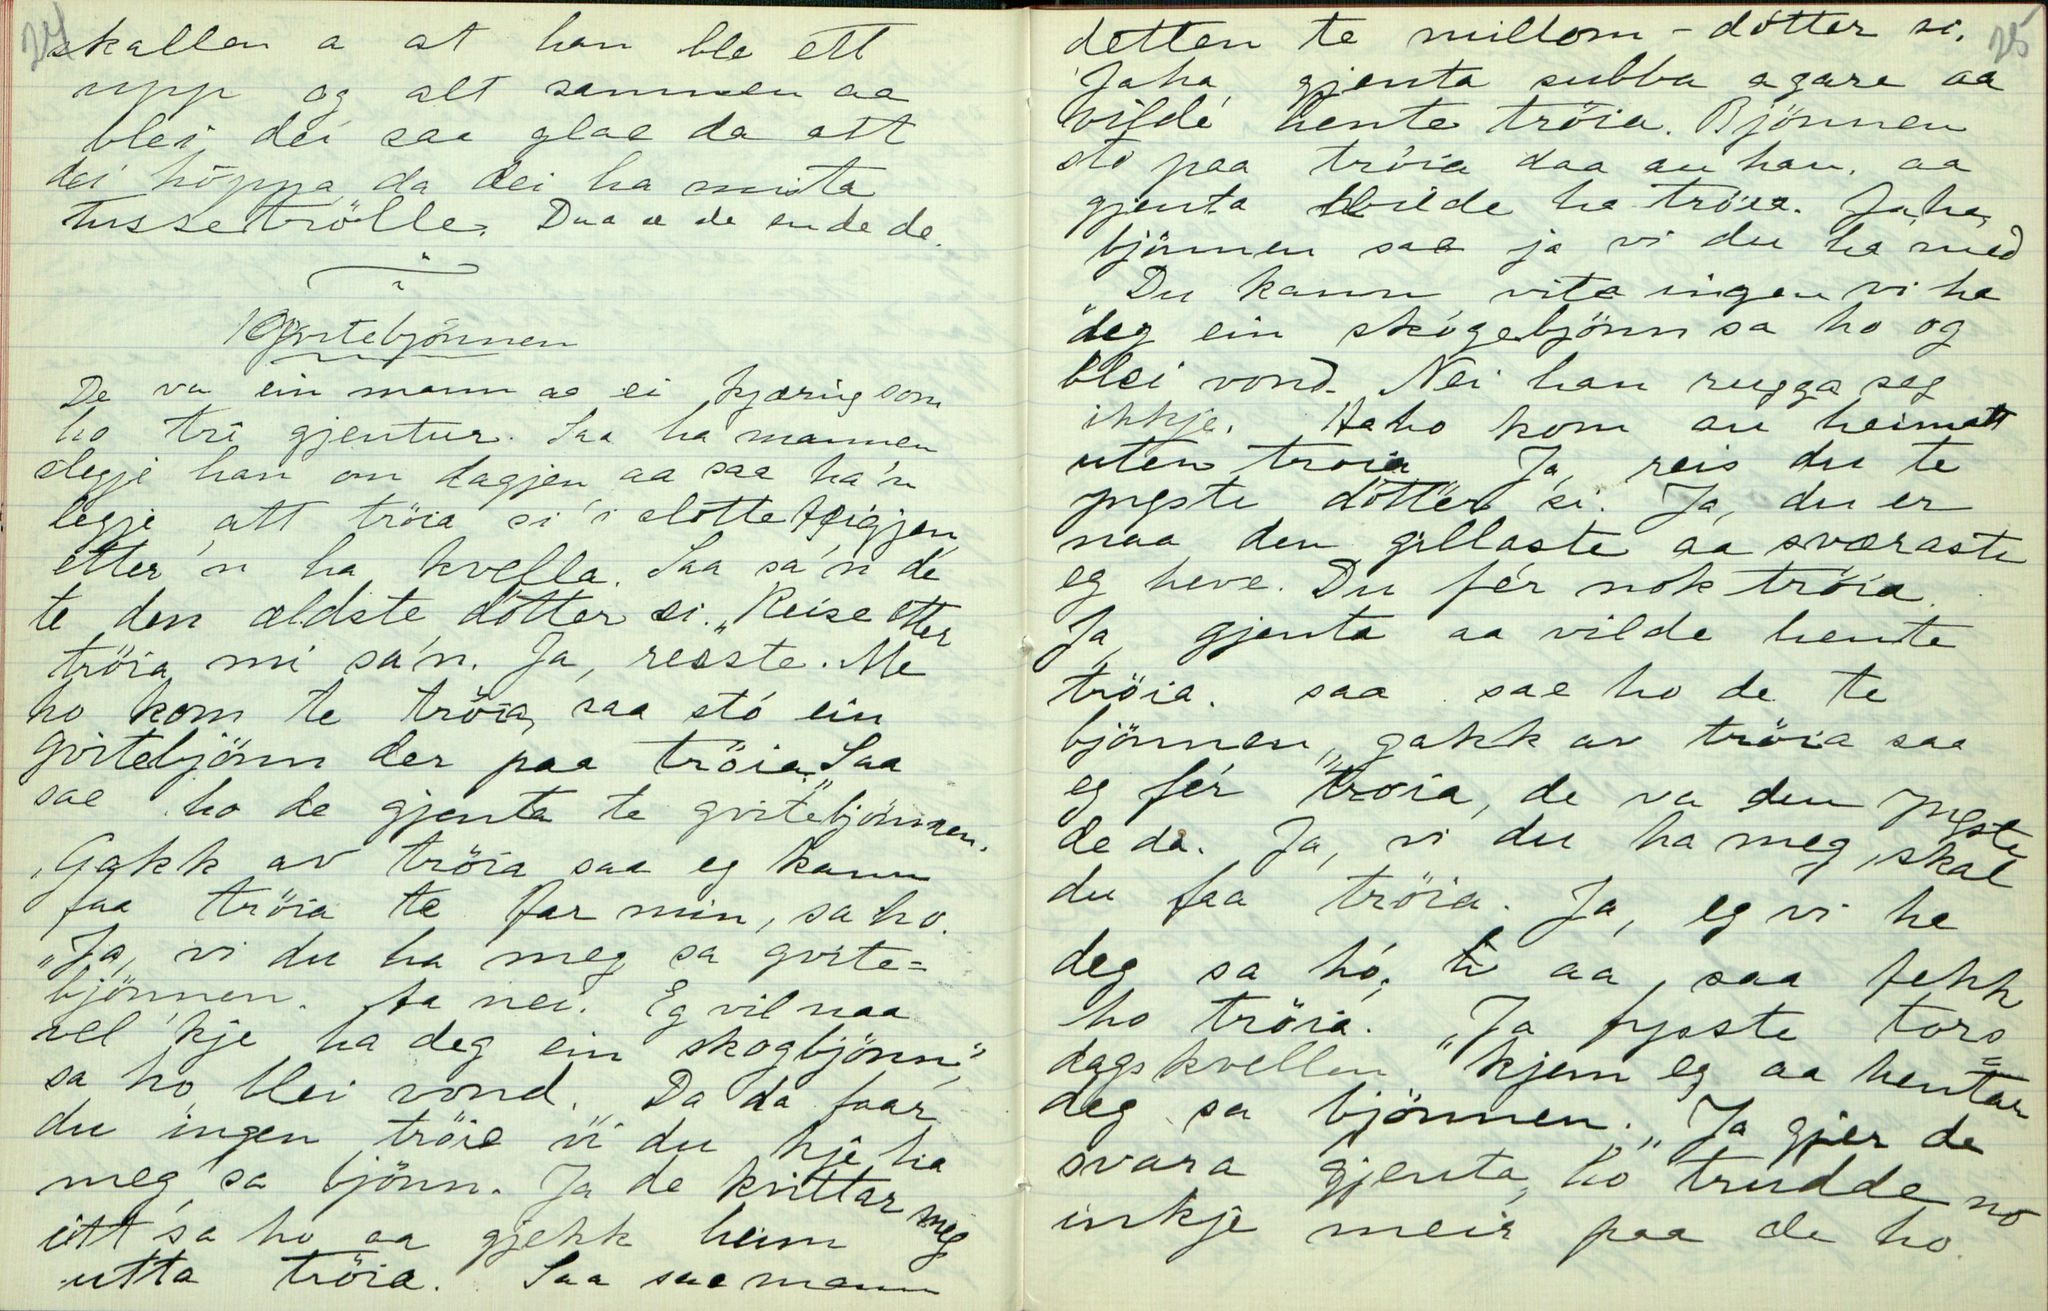 24
skallen a at han ble ett
upp og alt sammen aa
blei dei saa glae da att
dei höppa da dei ha mista
tussetrölle. Daa æ de ende de.
Gvitebjönnen
De va ein mann aa ei kjæring som
ho tri gjentur. Saa ha mannen
slegje han om dagjen aa saa ha'n
legje att tröia si i slotteteigjen
etter'n ha kvella. Saa sa'n de
te den ældste dotter si. „Reise etter
tröia mi sa'n. Ja, resste. Me
ho kom te tröia, saa stó ein
gvitebjönn der paa tröia. Saa
sae ho de gjenta te gvitebjönnen.
„Gakk av tröia saa eg kann
faa tröia te far min, sa ho.
„Ja, vi du ha meg sa gvite=
bjönnen. Aa nei. Eg vil naa
vel 'kje ha deg ein skogbjönn",
sa ho, blei vond. „Da da faar
du ingen tröie vi du kje ha
meg, sa bjönn. Ja de kvittar meg
itt sa ho aa gjekk heim
utta tröia. Saa sae mann
25
detten te millom-dotter si.
Jaha gjenta subba agare aa
vilde hente tröia. Bjönnen
sto paa tröia daa au han, aa
gjenta vilde ha tröia. Jaha,
bjönnen sae ja vi du ha med
„Du kann vita ingen vi ha
deg ein skogebjönn sa ho og
blei vond. Nei han rugga seg
ikkje. Aa ho kom au heimatt
uten tröia Ja, reis du te
yngste dotter si. Ja, du er
naa den gillaste aa sværaste
eg heve. Du fér nok tröia.
Ja, gjenta aa vilde hente
tröia. saa sae ho de te
bjönnen, „gakk av tröia saa
eg fér tröia, de va den yngste
de da. Ja, vi du ha meg, skal
du faa tröia. Ja, eg vi he
deg sa hó, aa saa fekk
ho tröia. „Ja fysste tors=
dagskvellen kjem eg aa hentar
deg sa bjönnen. „Ja gjer de
svara gjenta, ho trudde no
inkje meir paa de ho.